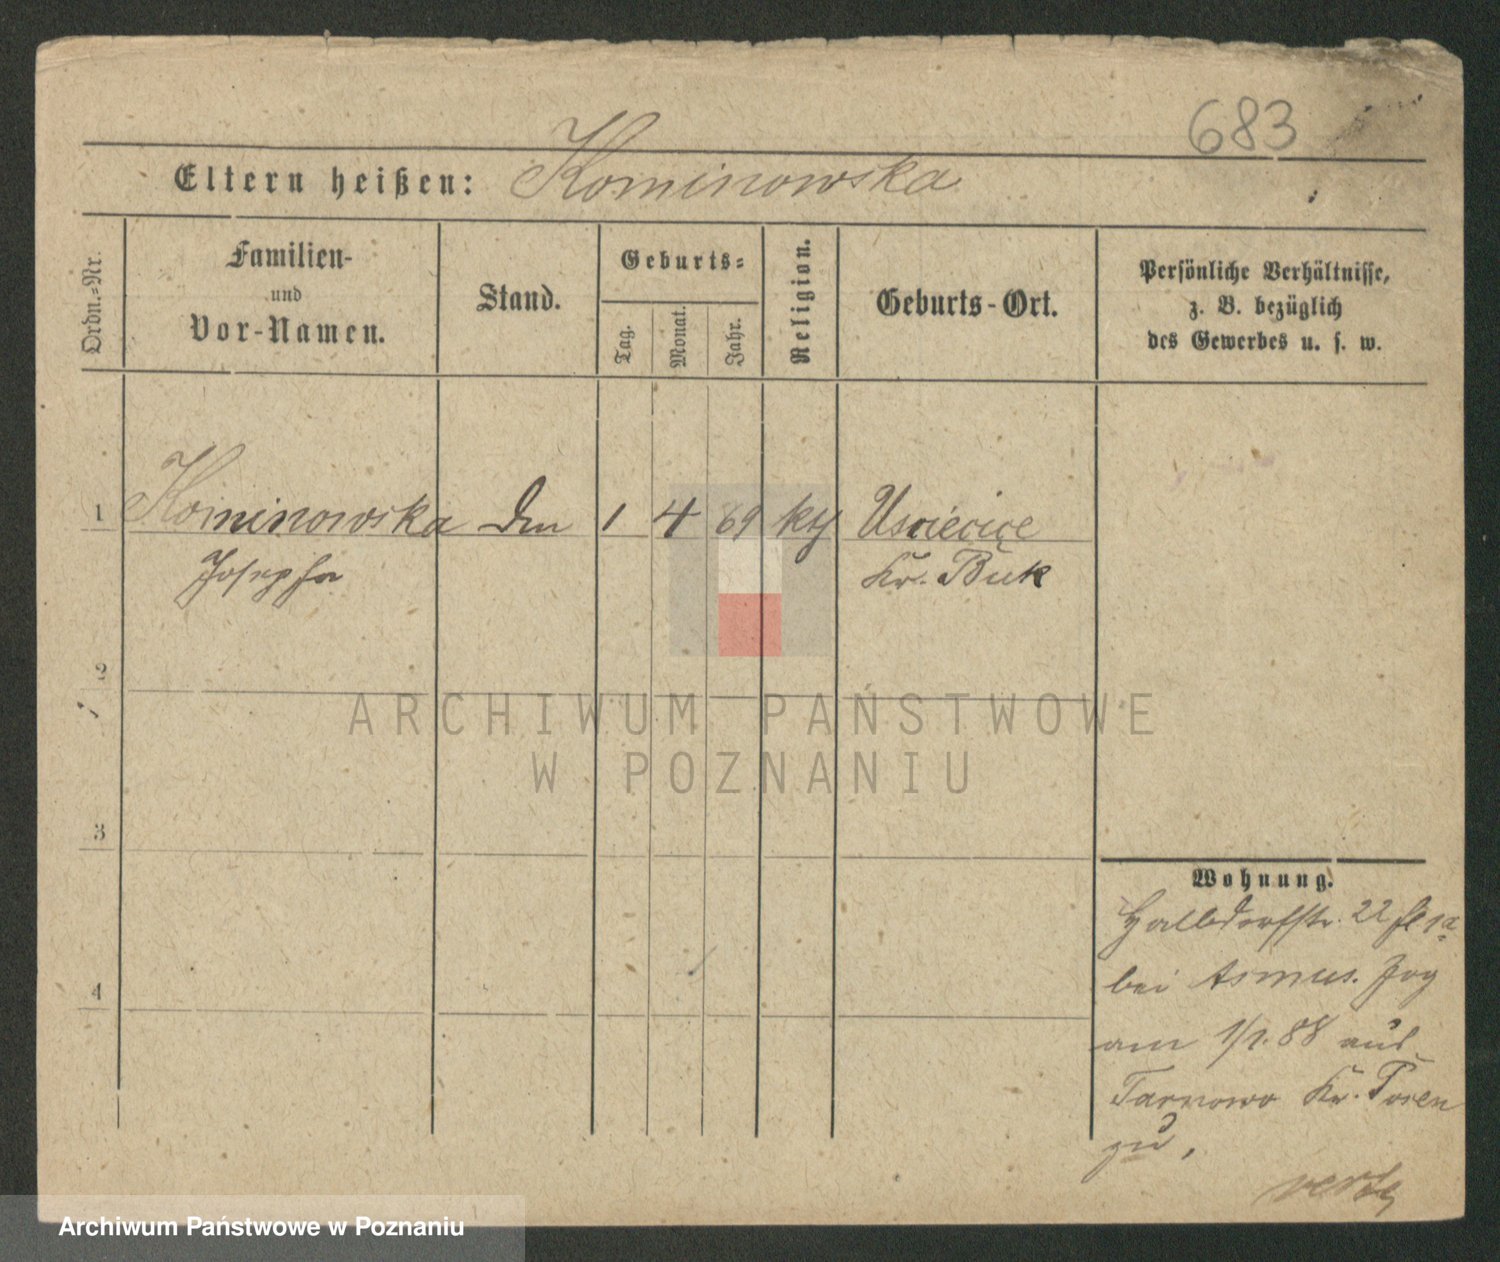 683
Eltern heißen: Kominowska
Ordn.-Nr.
Familien-
und
Vor-Namen.
Stand.
Geburts-
Tag.
Monat.
Jahr.
Religion.
Geburts-Ort.
Persönliche Verhältnisse,
z. B. bezüglich
des Gewerbes u. s. w.
1 Kominowska 1 4 69 kth Usciecice
Josepha Kr. Buk
2
3
4
Wohnung.
Halbdorfstr. 22
bei Asmus. Zog
am 1/1.88 aus
Tarnowo Kr. Posen
zu,
ARCHIWUM PAŃSTWOWE
W POZNANIU
Archiwum Państwowe w Poznaniu